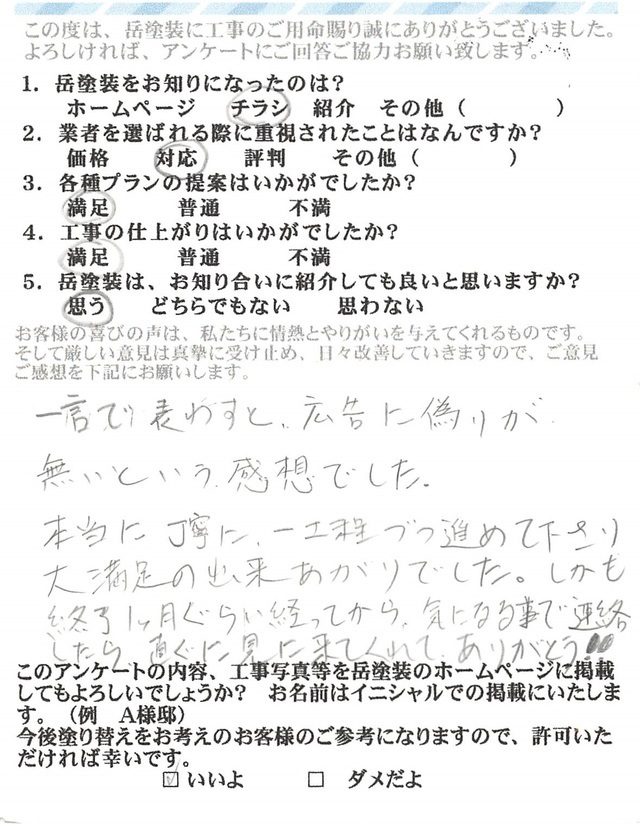 この度は、岳塗装に工事のご用命賜り誠にありがとうございました。
よろしければ、アンケートにご回答ご協力お願い致します。
1. 岳塗装をお知りになったのは?
ホームページ チラシ 紹介 その他( )
2. 業者を選ばれる際に重視されたことはなんですか?
価格 対応 評判 その他( )
3. 各種プランの提案はいかがでしたか?
満足 普通 不満
4. 工事の仕上がりはいかがでしたか?
満足 普通 不満
5. 岳塗装は、お知り合いに紹介しても良いと思いますか?
思う どちらでもない 思わない
お客様の喜びの声は、私たちに情熱とやりがいを与えてくれるものです。
そして厳しい意見は真摯に受け止め、日々改善していきますので、ご意見
ご感想を下記にお願いします。
一言で表わすと、広告に偽りが
無いという感想でした。
本当に丁寧に、一工程づつ進めて下さり
大満足の出来あがりでした。しかも
終了1ヶ月ぐらい経ってから、気になる事で連絡
したら、直ぐに見に来てくれて、ありがとう!!
このアンケートの内容、工事写真等を岳塗装のホームページに掲載
してもよろしいでしょうか? お名前はイニシャルでの掲載にいたしま
す。(例 A様邸)
今後塗り替えをお考えのお客様のご参考になりますので、許可いた
だければ幸いです。
☑ いいよ □ ダメだよ